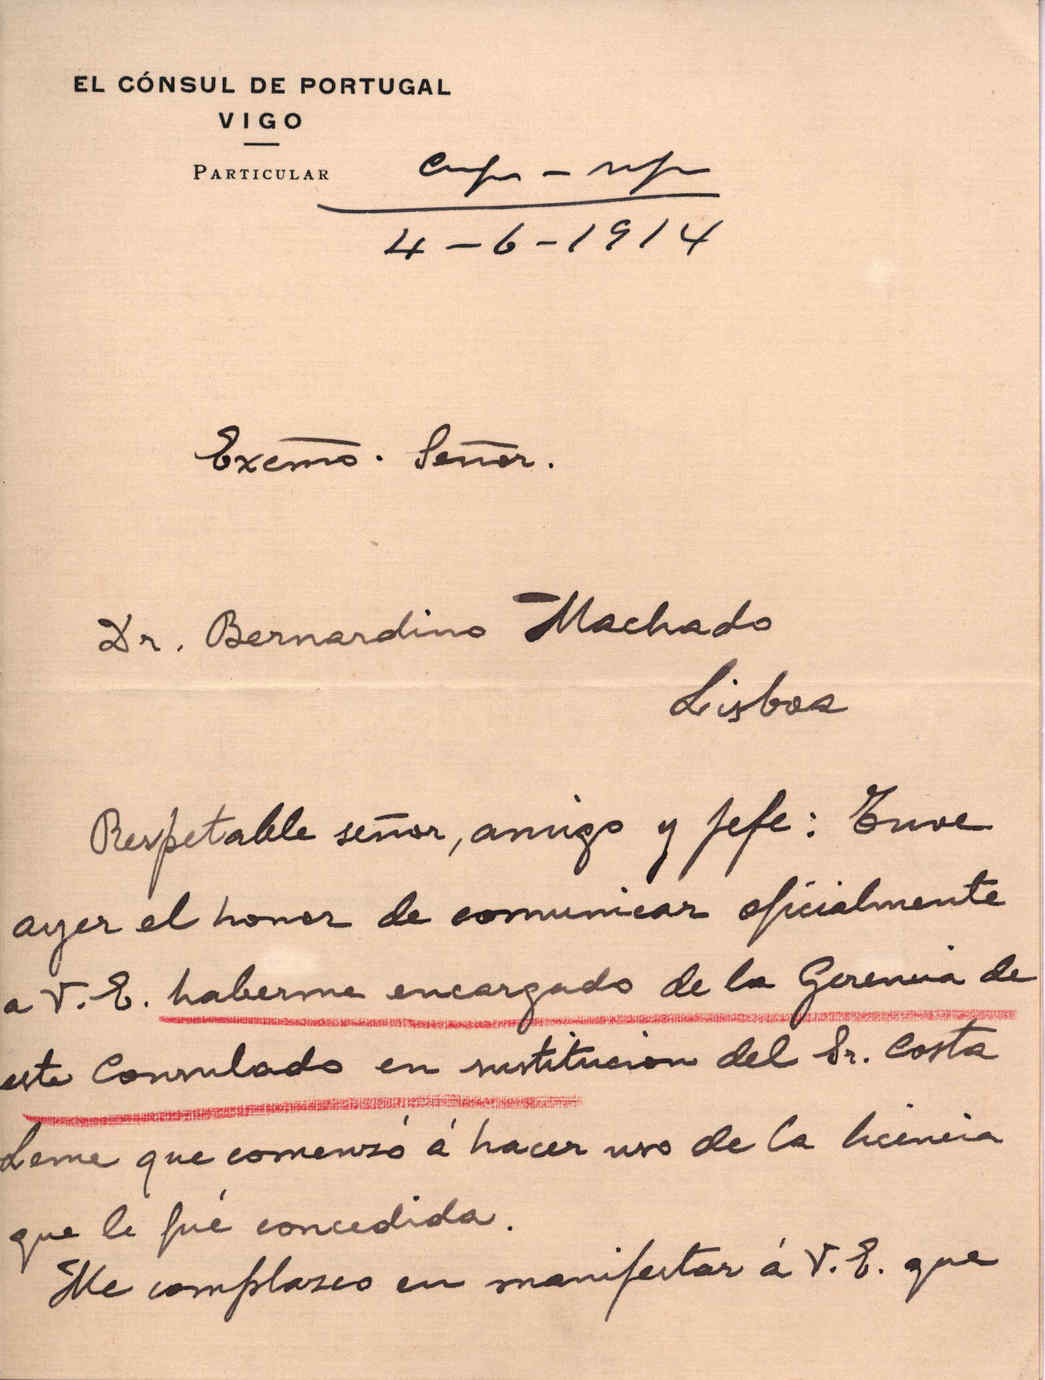 EL CÓNSUL DE PORTUGAL
VIGO
PARTICULAR
4-6-1914
Excmo. Señor.
Dr. Bernardino Machado
Lisboa
Respetable señor, amigo y jefe: Tuve
ayer el honor de comunicar oficialmente
a V. E. haberme encargado de la Gerencia de
este Consulado en sustitucion del Sr. Costa
Leme que comenzó á hacer uso de la licencia
que le fué concedida.
Me complazco en manifestar á V. E. que